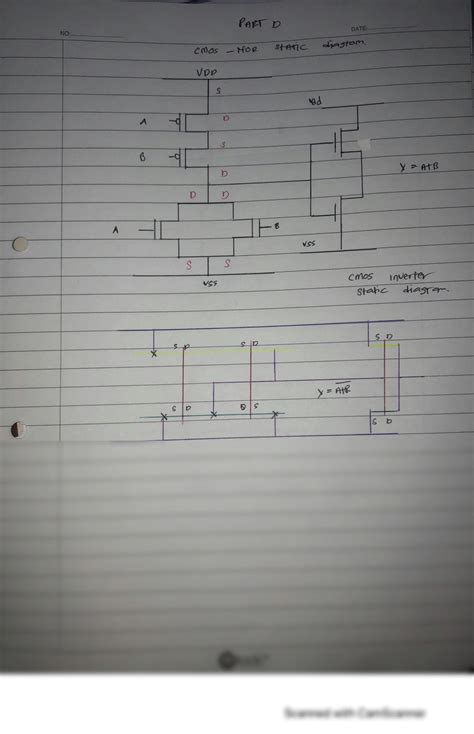 PART D
NO:
DATE:
CMOS - NOR STATIC diagram.
VDD
S
Vdd
A
D
S
B
D
Y = A+B
D D
A
B
VSS
S S
VSS
CMOS inverter
static diagram.
S D
S D
S D
Y = \overline{A+B}
S D
S
S D
Scanned with CamScanner